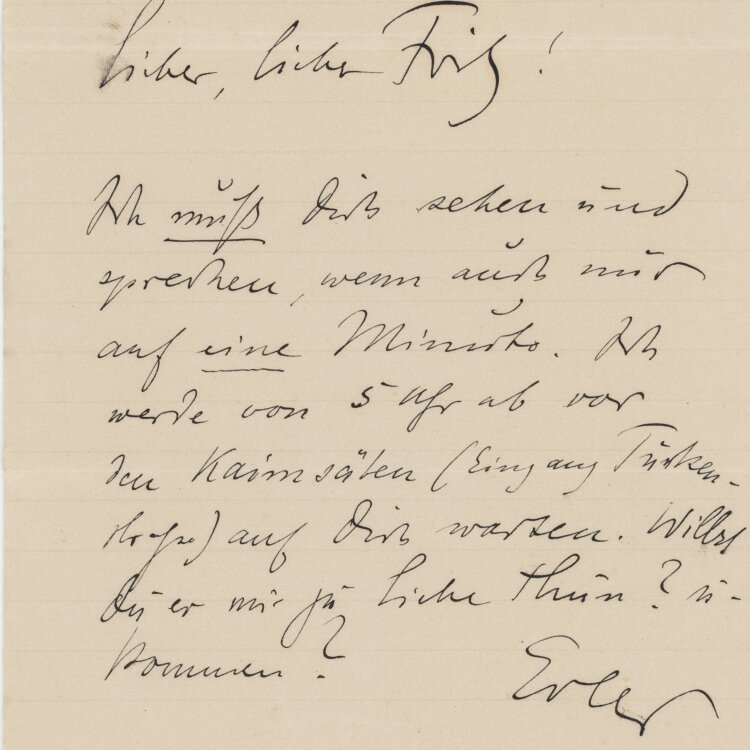 Lieber, lieber Fritz!
Ich muß Dich sehen und
sprechen, wenn auch nur
auf eine Minute. Ich
werde von 5 Uhr ab vor
den Kaimsälen (Eingang Türken-
straße) auf Dich warten. Willst
Du es mir zu Liebe thun? u-
kommen?
Erler